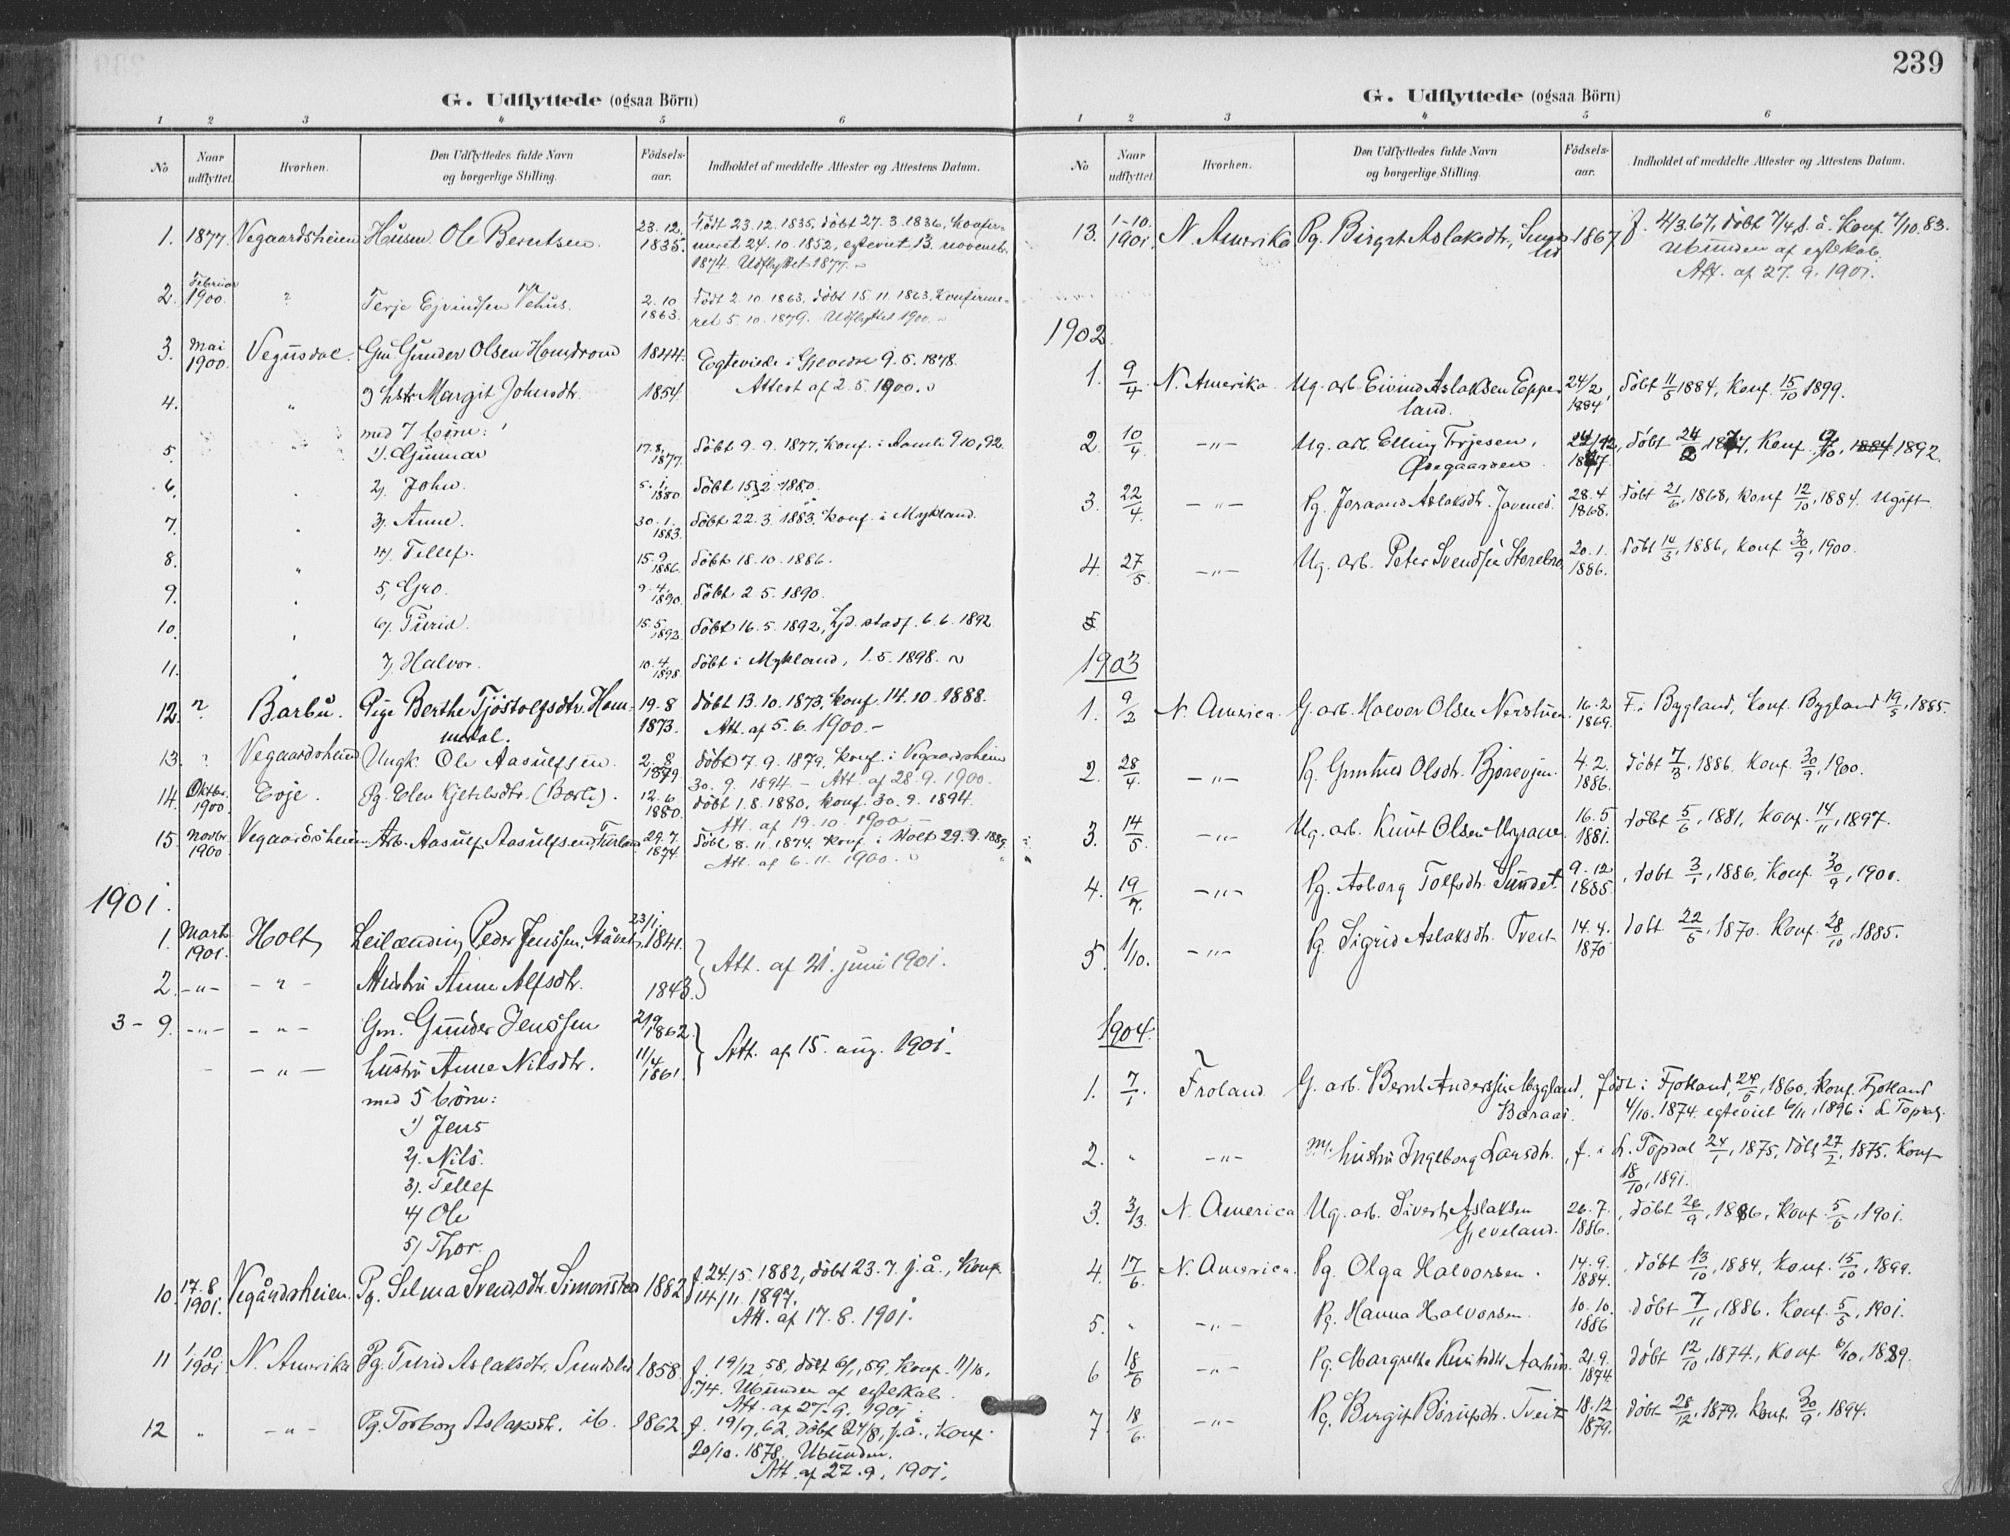 G. Udflyttede (ogsaa Börn)
1 2 3 4 5 6
No Naar udflyttet. Hvorhen. Den Udflyttedes fulde Navn og borgerlige Stilling. Födsels-aar. Indholdet af meddelte Attester og Attestens Datum.
1. 1877. Vegaardsheien Husm. Ole Berntsen. 23.12. 1835. Født 23.12.1835. døbt 27.3.1836, Konfir-
meret 24.10.1852, egteviet 13. novemb.
1874. Udflyttet 1877.
2. Februar 1900. " Terje Ejvindsen Vehus. 2.10 1863. født 2.10.1863. døbt 15.11.1863, Konfirme-
ret 5.10.1879. Udflyttet 1900.
3. Mai 1900. Vegusdal. Gm. Gunder Olsen Homdrom 1844. Egteviede i Gjevedre 9.5.1878.
4. " Hstr Margit Johnsdtr. 1854. Attest af 2.5.1900.
med 7 børn:
5. 1). Gunnar 17.8. 1877. døbt 9.9.1877, Konf. i Aamli 9/10,92.
6. 2). John. 5.1. 1880. døbt 15/2 1880.
7. 3). Anne. 30.1. 1883. døbt 22.3.1883, konf. i Mykland.
8. " 4). Tellef. 15.9. 1886. døbt 18.10.1886.
9. 5, Gro. 9.4. 1890. døbt 2.5.1890.
10. 6). Turid. 15.5. 1892. døbt 16.5.1892, Hjd. stadf. 6.6.1892
11. 7, Halvor. 10.4. 1898 døbt i Mykland, 1.5.1898.
12. " Barbu. Pige Berthe Tjöstolfsdtr. Hom- 19.8 1873. døbt 13.10.1873, konf. 14.10.1888.
Att. af 5.6.1900.
13. " Vegaardsheien Ungk. Ole Aasulfsen. 2.8 1879 døbt 7.9.1879, Konf. i Vegaardsheien
30.9.1894 – Att. af 28.9.1900.
14. Oktbr. 1900. Evje. Pg. Elen Kjetilsdtr. 12.6 1880. døbt 1.8.1880, konf. 30.9.1894.
Att. af 19.10.1900
15. Novbr. 1900 Vegaardsheien. Arb. Aasulf Aasulfsen, 29.7 1874 døbt 8.11.1874. konf. i Holt 29.9.1889.
Att. af 6.11.1900.
1901.
1. Marts 1901. Holt, Leilænding Peder Jenssen, 23/1 1841. Att. af 21. juni 1901.
2. –"– –"– Hustru Anne Alfsdtr. 1843.
3 – 9. –"– –"– Gm. Gunder Jenssen 2/9 1862 Att. af 15. aug. 1901.
–"– hustru Anne Nilsdtr. 11/4 1861.
med 5 børn:
1) Jens
2). Nils.
3). Tellef
4) Ole
5) Thor.
10. 17.8. 1901. Vegårdsheien. Pg. Selma Svendsdtr. Simonsted 1882 f. 24/5.1882, døbt 23.7. s.å., Konf.
14/11.1897.
Att. af 17.8.1901.
11 1.10 1901 N. Amerika Pg. Turid Aslaksdtr. Sundslid 1858. f. 19/12,58, døbt 6/1,59, Konf. 11/10,
74. Ubunden af egteskab.
Att. af 27.9.1901.
12 " –"– Pg. Torborg Aslaksdtr. ib. 1862. f. 19/7,62, døbt 24/8, s.å., Konf.
20/10.1878, Ubunden.
Att. af 27.9.1901.
239
G. Udflyttede (ogsaa Börn)
1 2 3 4 5 6
No Naar udflyttet. Hvorhen. Den Udflyttedes fulde Navn og borgerlige Stilling. Födsels-aar. Indholdet af meddelte Attester og Attestens Datum.
13. 1–10. 1901 N. Amerika Pg. Birgit Aslaksdtr., Sunds-lid 1867 f. 4/3.67, døbt 7/4, s.å. Konf. 7/10.83.
Ubunden af egteskab.
Att. af 27.9.1901.
1902.
1. 9/4 N. Amerika. Ug. arb. Eivind Aslaksen Eppe-land. 24/2 1884, døbt 11/5 1884, konf. 15/10 1899.
2 10/4 –"– Ug. arb. Elling Terjesen, Øvegaarden. døbt 24/2, 1877, Konf. 1892.
3. 22/4 –"– Pg. Joraand Aslaksdtr. Javenes. 28.4 1868. døbt 21/6, 1868, konf 12/10, 1884. Ugift
4. 27/5. –"– Ug. arb. Peter Svendsen 20.1. 1886. døbt 14/3, 1886, konf 30/9, 1900.
5
1903
1. 9/2 N. America. G. arb. Halvor Olsen 16.2 1869. F. i Bygland, konf. Bygland 19/5, 1885.
2. 28/4. –"– Pg. Gunhild Olsdtr. 4.2. 1886. døbt 7/3, 1886. Konf. 30/9, 1900.
3. 14/5. –"– Ug. arb. Knut Olsen Myrane 16.5 1881. døbt 5/6, 1881, Konf. 14/11, 1897.
4. 19/7. –"– Pg. Asborg Tolfsdtr. Sundet. 9.12 1885, døbt 3/1, 1886, Konf. 30/9, 1900.
5. 1/10. –"– Pg. Sigrid Aslaksdtr. Tveit 14.4. 1870 døbt 22/5, 1870. Konf. 28/10, 1885.
1904.
1. 7/1. Froland. G. arb. Bernt Anderssen Mygland, født i Fjotland, 1860, konf. Fjotland
Baraas. 4/10.1874. egteviet 6/11, 1896 i
2. " –"– M. hustru Ingeborg Larsdtr., f. i 24/1, 1875, døbt 27/2, 1875. Konf
18/10, 1891.
3. 3/3. N. America Ug. arb. Sivert Aslaksen Gjeveland. 26.7. 1886. døbt 26/9, 1886, konf. 5/5, 1901.
4. 17/6 N. America. Pg. Olga Halvorsen. 14.9. 1884. døbt 13/10, 1884, konf. 15/10, 1899.
5. " –"– Pg. Hanna Halvorsen. 10.10. 1886 døbt 7/11, 1886. Konf. 5/5, 1901.
6 18/6 –"– Pg. Margrethe Knutsdtr. 21.9. 1874. døbt 12/10, 1874., konf 6/10, 1889.
7. 18/6. –"– Pg. Birgit Tveit 18.12 1879. døbt 28/12, 1879. konf. 30/9, 1894.